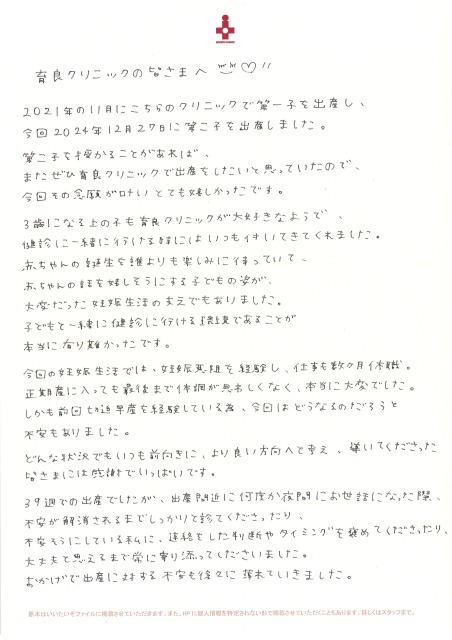 育良クリニックの皆さまへ
2021年の11月にこちらのクリニックで第一子を出産し、
今回2024年12月27日に第二子を出産しました。
第二子を授かることがあれば、
またぜひ育良クリニックで出産をしたいと思っていたので、
今回その念願が叶いとても嬉しかったです。
3歳になる上の子も育良クリニックが大好きなようで、
健診に一緒に行ける時にはいつも付いてきてくれました。
赤ちゃんの誕生を誰よりも楽しみに待っていて、
赤ちゃんの話を嬉しそうにする子どもの姿が、
大変だった妊娠生活の支えでもありました。
子どもと一緒に健診に行ける環境であることが
本当に有り難かったです。
今回の妊娠生活では、妊娠悪阻を経験し、仕事も数ヶ月休職。
正期産に入っても最後まで体調が芳しくなく、本当に大変でした。
しかも前回切迫早産を経験している為、今回はどうなるのだろうと
不安もありました。
どんな状況でもいつも前向きに、より良い方向へと考え、導いてくださった
皆さまには感謝でいっぱいです。
39週での出産でしたが、出産間近に何度か夜間にお世話になった際、
不安が解消されるまでしっかりと診てくださったり、
不安そうにしている私に、連絡をした判断やタイミングを褒めてくださったり、
大丈夫と思えるまで常に寄り添ってくださいました。
おかげで出産に対する不安も徐々に薄れていきました。
原本はいいたいぞファイルに掲載させていただきます。また、HPに個人情報を特定されない形で掲載させていただくこともあります。詳しくはスタッフまで。